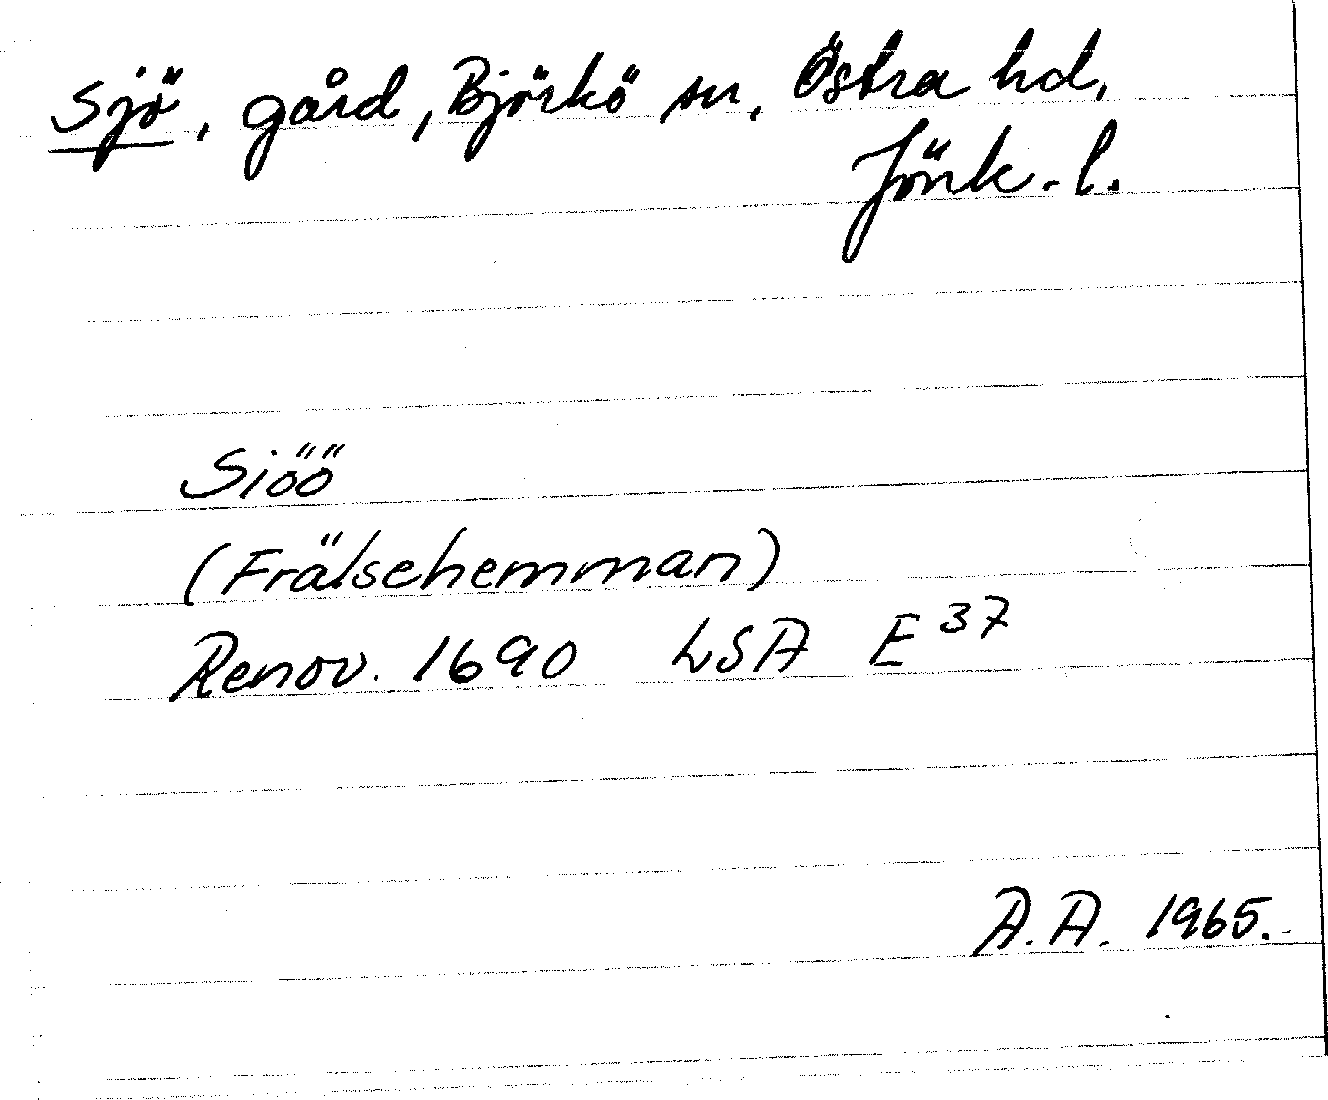 Sjö, gård, Björkö sn, Östra hd,
Jönk. l.
Siöö
(Frälsehemman)
Renov. 1690 LSA E 37
A.A. 1965.